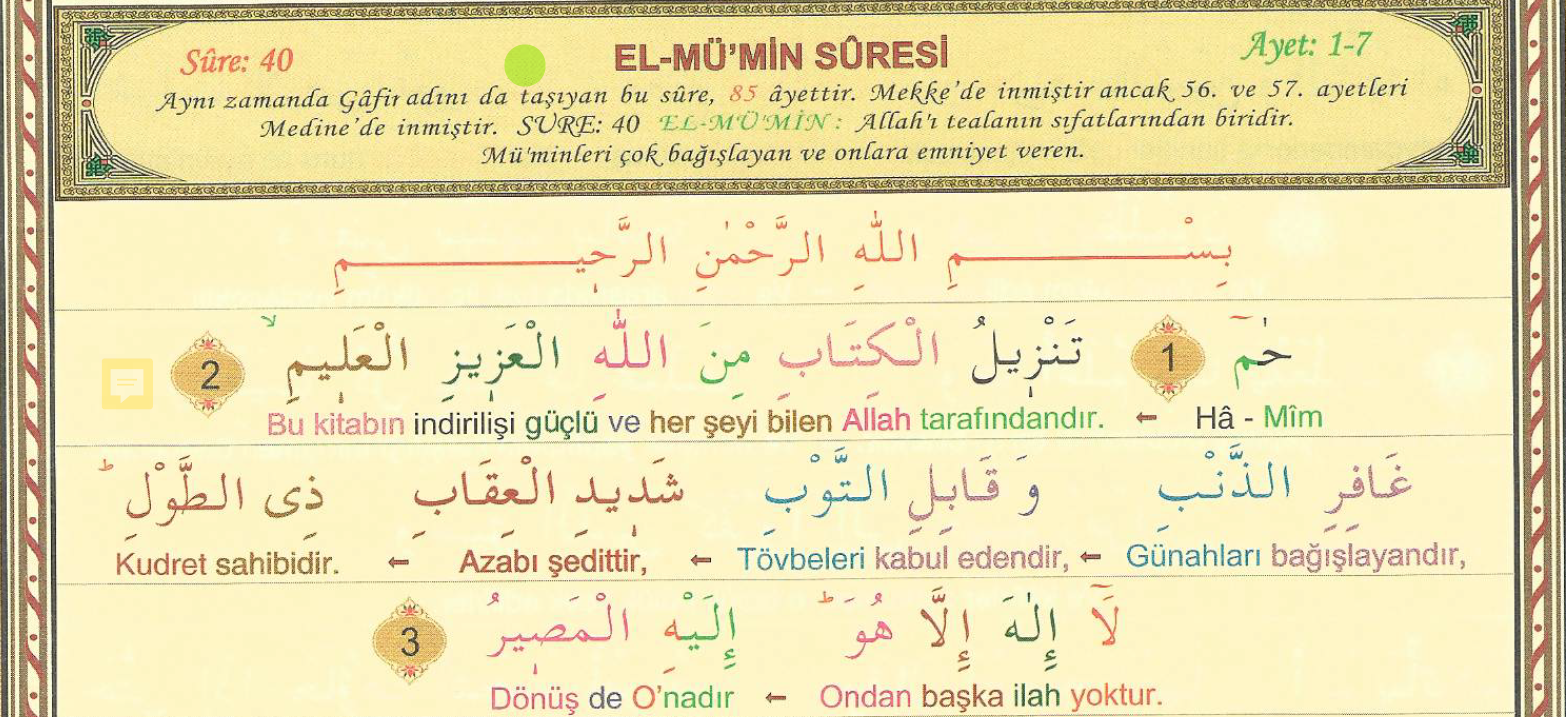 Sûre: 40 EL-MÜ'MİN SÛRESİ Ayet: 1-7
Aynı zamanda Gâfir adını da taşıyan bu sûre, 85 âyettir. Mekke'de inmiştir ancak 56. ve 57. ayetleri
Medine'de inmiştir. SURE: 40 EL-MÜ'MİN : Allah'ı tealanın sıfatlarından biridir.
Mü'minleri çok bağışlayan ve onlara emniyet veren.
بِسْمِ اللّٰهِ الرَّحْمٰنِ الرَّحٖيمِ
حٰمٓ 1 تَنْزٖيلُ الْكِتَابِ مِنَ اللّٰهِ الْعَزٖيزِ الْعَلٖيمِۙ 2
Hâ - Mîm ← Bu kitabın indirilişi güçlü ve her şeyi bilen Allah tarafındandır.
غَافِرِ الذَّنْبِ وَ قَابِلِ التَّوْبِ شَدٖيدِ الْعِقَابِ ذِى الطَّوْلِۜ
Günahları bağışlayandır, ← Tövbeleri kabul edendir, ← Azabı şedittir, ← Kudret sahibidir.
لَٓا اِلٰهَ اِلَّا هُوَۜ اِلَيْهِ الْمَصٖيرُ 3
Ondan başka ilah yoktur. ← Dönüş de O'nadır